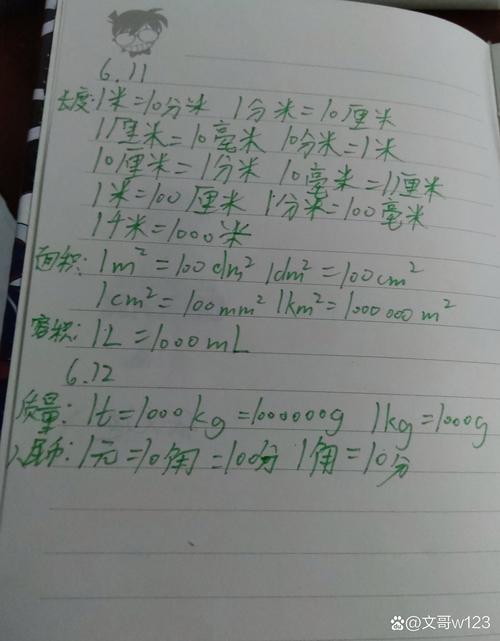 6.11
长度:1米=10分米 1分米=10厘米
1厘米=10毫米 10分米=1米
10厘米=1分米 10毫米=1厘米
1米=100厘米 1分米=100毫米
1千米=1000米
面积:1m²=100dm² 1dm²=100cm²
1cm²=100mm² 1km²=1000000m²
容积:1L=1000mL
6.12
质量:1t=1000kg=1000000g 1kg=1000g
人民币:1元=10角=100分 1角=10分
文哥w123